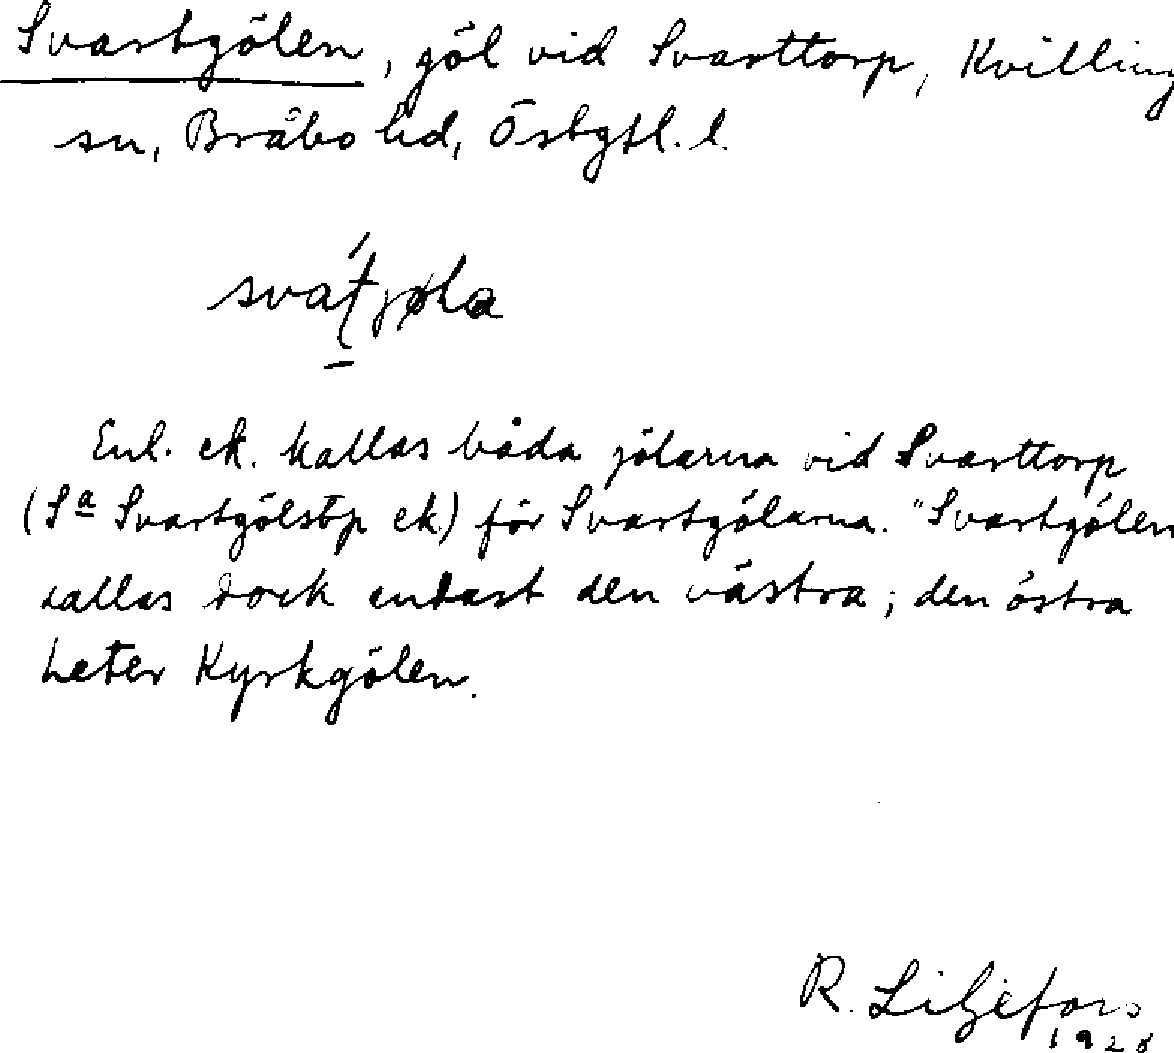 Svartgölen, göl vid Svarttorp, Kvilling
sn, Bråbo hd, Östgtl. l.
Enl. ek. kallas båda jölarna vid Svarttorp
(Sª Svartgölstp ek.) för Svartgölarna. "Svartgölen
kallas dock endast den västra; den östra
heter Kyrkgölen.
R. Liljefors